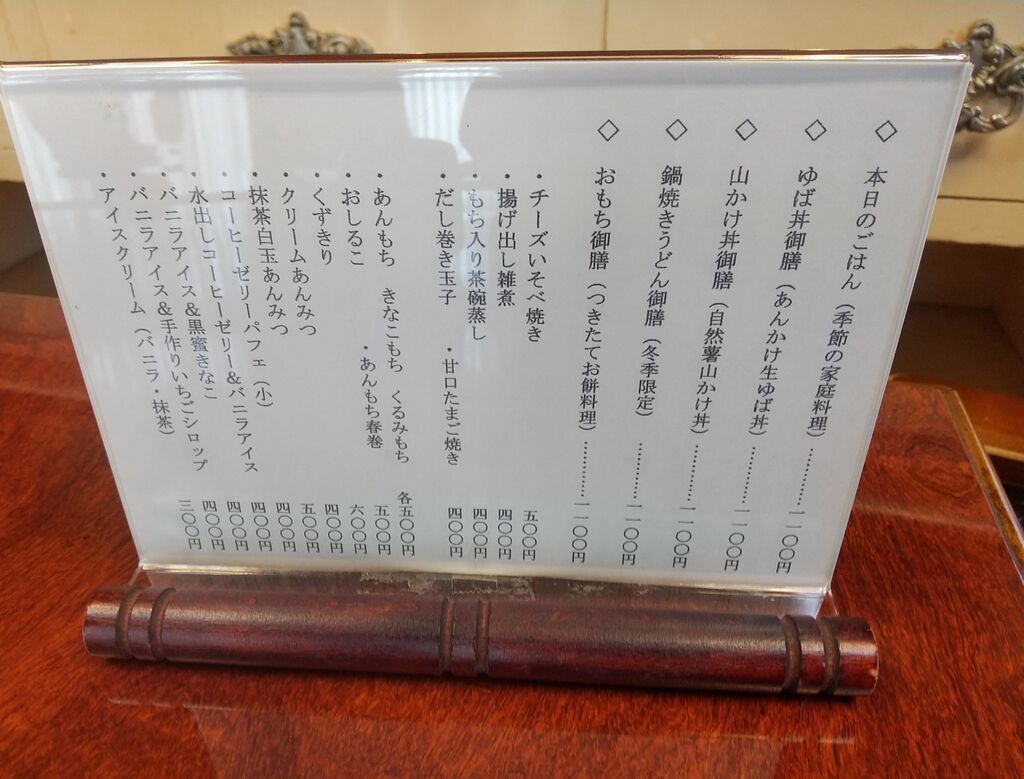 ◇ 本日のごはん（季節の家庭料理）…………一一〇〇円
◇ ゆば丼御膳（あんかけ生ゆば丼）…………一一〇〇円
◇ 山かけ丼御膳（自然薯山かけ丼）…………一一〇〇円
◇ 鍋焼きうどん御膳（冬季限定）…………一一〇〇円
◇ おもち御膳（つきたてお餅料理）…………一一〇〇円
・チーズいそべ焼き 五〇〇円
・揚げ出し雑煮 四〇〇円
・もち入り茶碗蒸し 四〇〇円
・だし巻き玉子 ・甘口たまご焼き 四〇〇円
・あんもち きなこもち くるみもち 各五〇〇円
・おしるこ ・あんもち春巻 五〇〇円
・くずきり 六〇〇円
・クリームあんみつ 四〇〇円
・抹茶白玉あんみつ 五〇〇円
・コーヒーゼリーパフェ（小） 四〇〇円
・水出しコーヒーゼリー＆バニラアイス 四〇〇円
・バニラアイス＆黒蜜きなこ 四〇〇円
・バニラアイス＆手作りいちごシロップ 四〇〇円
・アイスクリーム（バニラ・抹茶） 三〇〇円